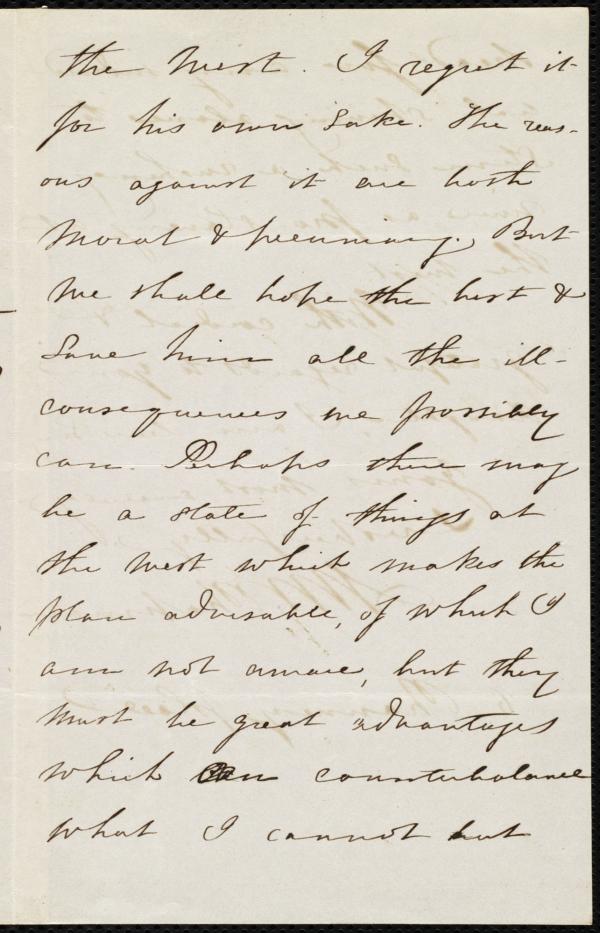 the West. I regret it
for his own sake. The reas-
ons against it are both
moral & pecuniary. But
we shall hope the best &
save him all the ill-
consequences we possibly
can. Perhaps there may
be a state of things at
the West which makes the
plan advisable, of which I
am not aware, but they
must be great advantages
which can counterbalance
what I cannot but